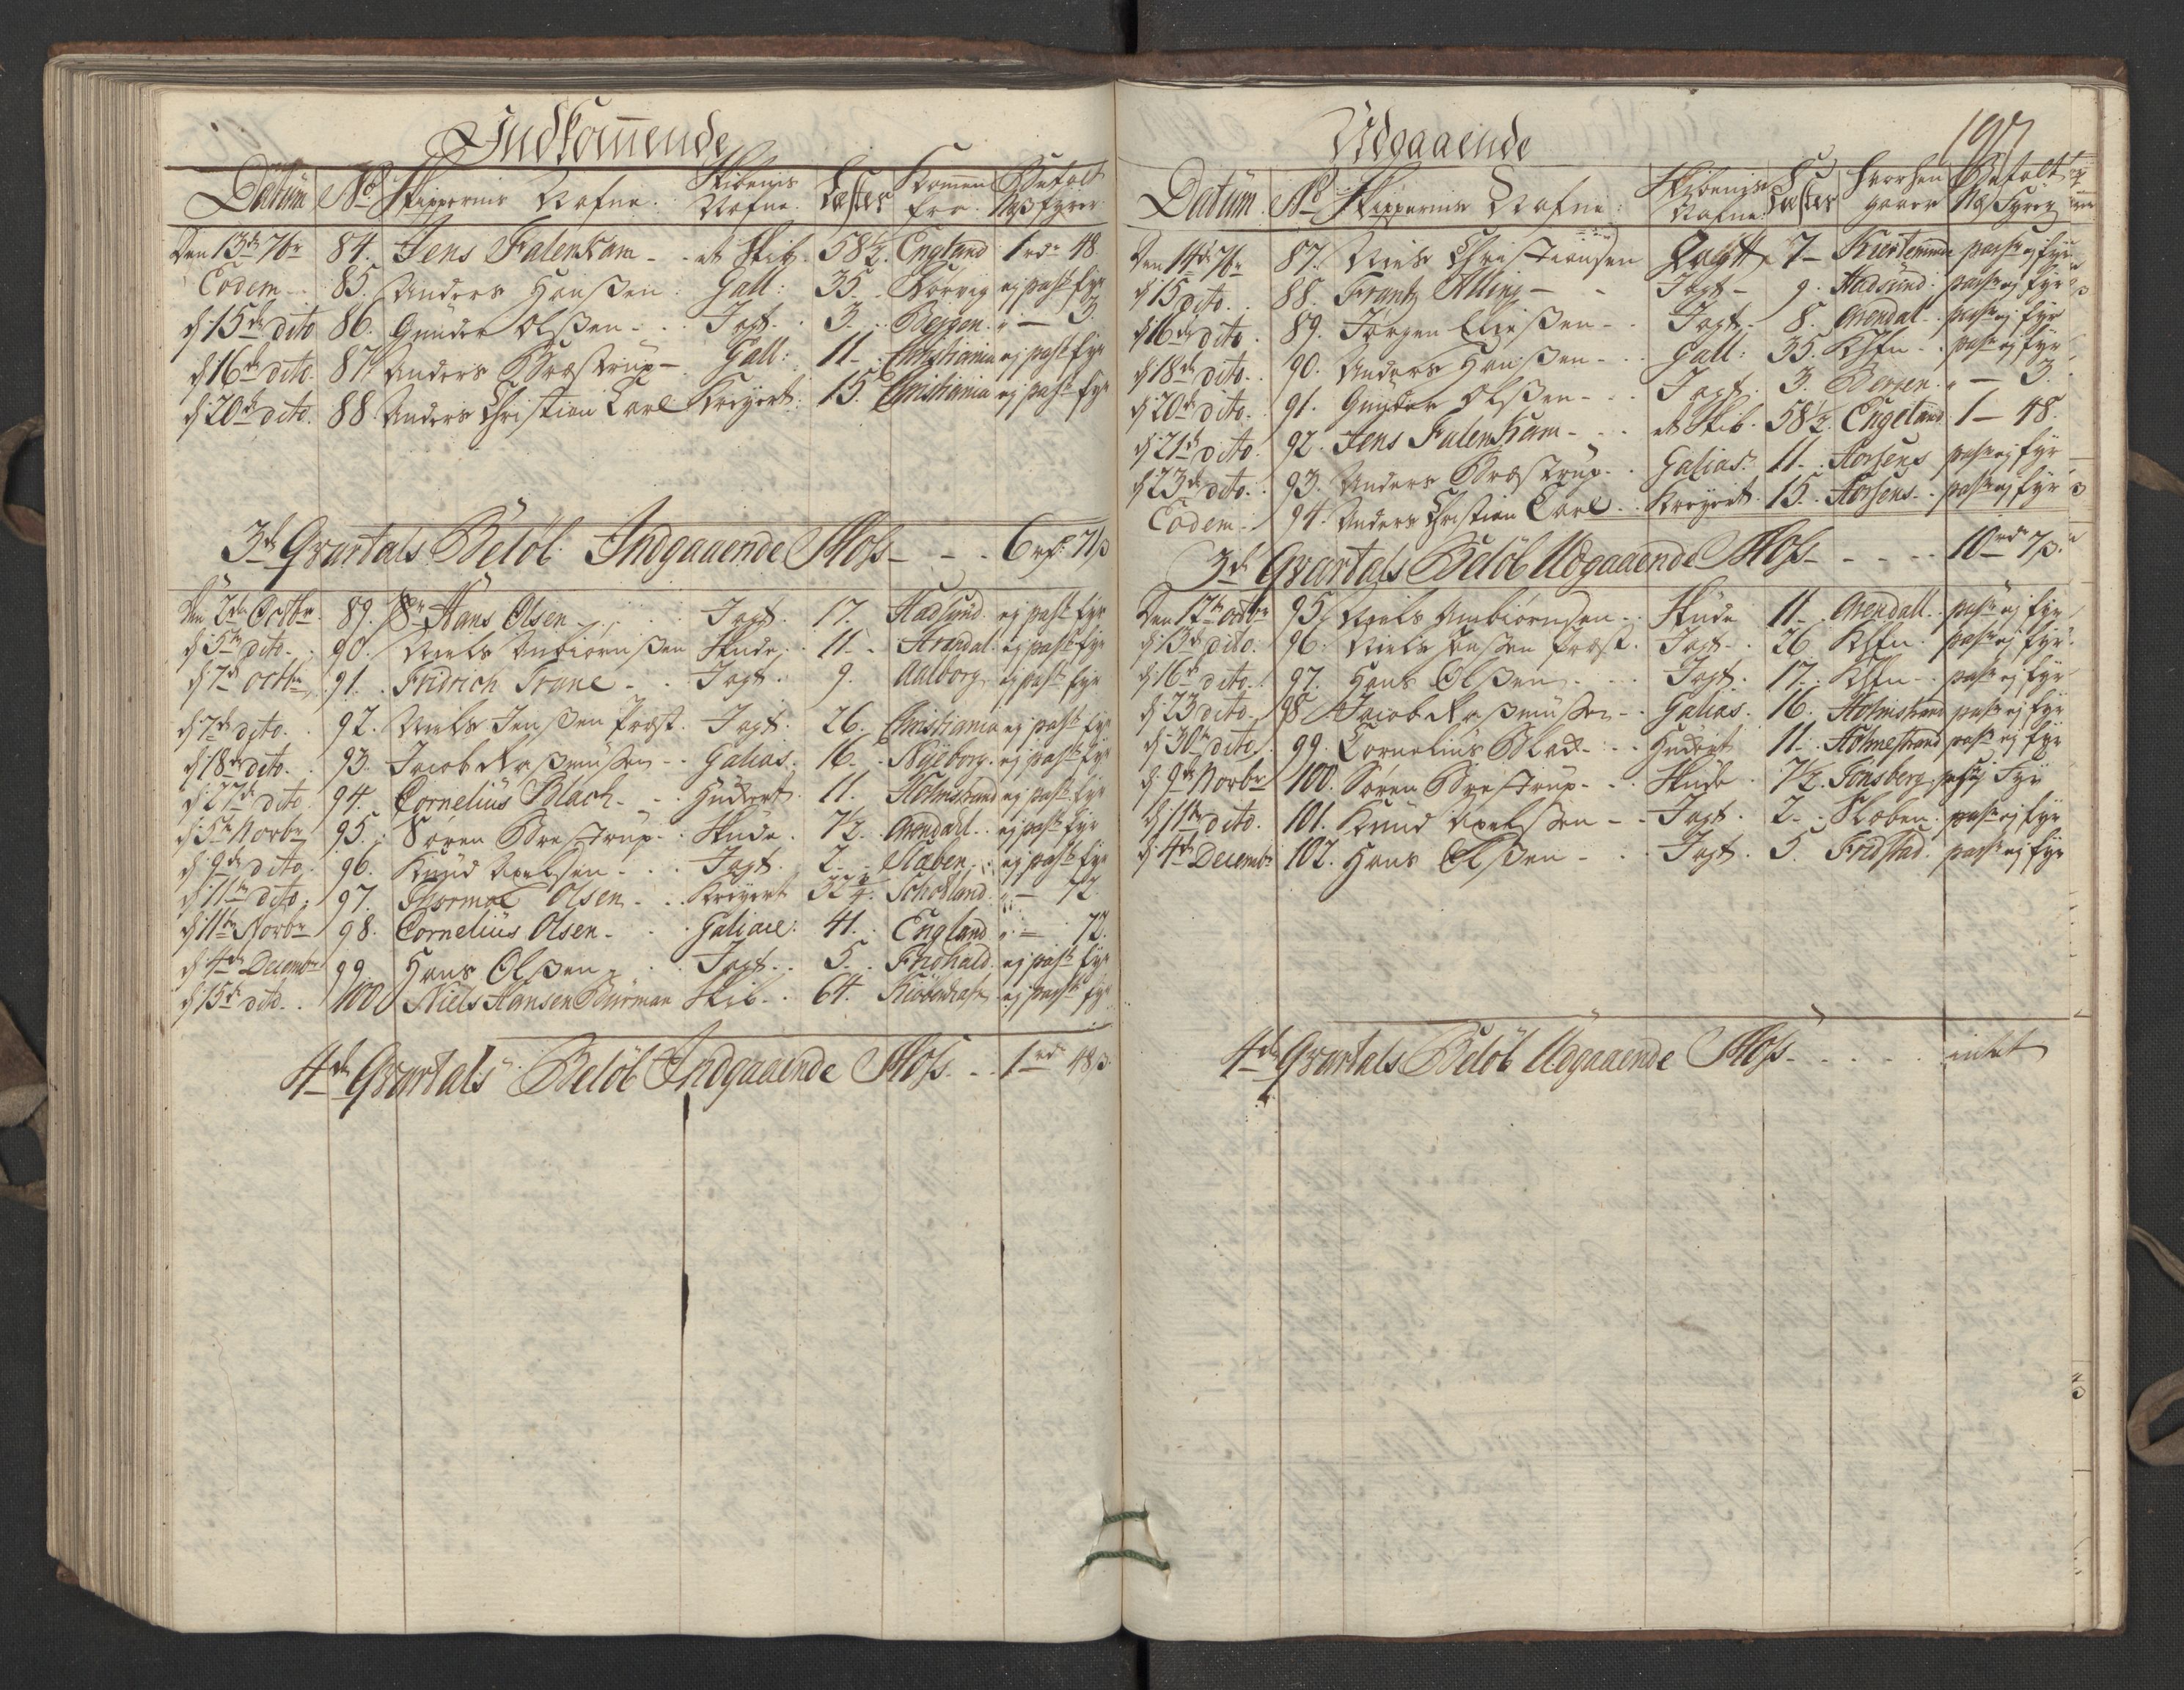 Indkommende
Datum No Skippernis Nafne. Skibenis Nafne. Læster Kommen fra. Betalt Næss fyrer
Den 13de 7br 84. Jens Falenkam - et Skib. 58½. England 1 rdr 48
Eodem - 85. Anders Hanssen. Gall: 35. Korvig ej pass: fyr
d: 15de dito 86. Gunder Olssen - Jagt. 3. Bergen. " - 3.
d: 16de dito. 87. Anders Bræstrup - Gall: 11. Christiania ej pass: fyr
d: 20de dito. 88. Anders Christian Carl Kreyert. 15. Christiania ej pass: fyr
3de Qvartals Beløb Indgaaende Moss - - - 6 rd: 71 s
Den 2de Octbr. 89. Hans Olsen - Jagt. 17. Hadsund. ej pass: fyr
d: 5te dito. 90. Niels Anbiørnssen Skude. 11. Arendal. ej pass: fyr
d: 7de octbr 91. Fridrich Trane - Jagt. 9. Aalborg ej pass: fyr
d: 7de dito. 92. Niels Jenssen Præst. Jagt. 26. Christiania ej pass: fyr
d: 18de dito. 93. Jacob Rassmussen - Galias. 16. Nyeborg. ej pass: fyr
d: 27de dito 94. Cornelius Blach - Hukert. 11. Holmstrand ej pass: fyr
d: 5te Novbr 95. Søren Brestrup. Skude. 7½. Arendall. ej pass: fyr
d: 9de dito 96. Knud Axelsen - Jagt. 2. Slæben. ej pass: fyr
d: 11te dito: 97. Thormoe Olsen - Kreyert 32¼. Schotland. " - 72.
d: 11te Novbr 98. Cornelius Olsen - Galiace: 41. England " - 72.
d: 4de Decembr 99. Hans Olssen - Jagt. 5. Fridhald. ej pass: fyr
d: 15de dito. 100 Niels Hansen Burman Skib. 64. Kiøbenhafn ej pass: fyr
4de Qvartals Beløb Indgaaende Moss. - 1 rdr 48 s.
197
Udgaaende
Datum. No Skippernis Nafne: Skibenis Nafne. Læster hvorhen gaaer Betalt Næs Fyrer
Den 14de 7br 87. Niels Christiansen Jagtt 7 - Kierteminde pass: ej fyr
d: 15 dito. 88. Frantz Alling - Jagt - 9. Hadsund. pass: ej fyr
d: 16de dito. 89. Jørgen Eliessen - Jagt - 8. Arendal. pass: ej fyr
d: 18de dito. 90. Anders Hanssen - Gall: 35. Khfn - pass: ej fyr
d: 20de dito. 91. Gunder Olssen - Jagt. 3. Bergen. " - 3.
d: 21de dito 92. Jens Falenkam - et Skib. 58½. Engeland 1 - 48.
d: 23de dito. 93. Anders Bræstrup. Galias. 11 - Horsens pass: ej fyr
Eodem - 94. Anders Christian Carl. Kreyert. 15. Horsens. pass: ej fyr
3de Qvartals Beløb Udgaaende Moss - - - - 10 rdr 7 s.
Den 12te octbr 95. Niels Anbiørnsen. Skude 11 - Arendall. pass: ej fyr
d: 13de dito. 96. Niels Jenssen Præst. Jagt - 26 Khfn. pass: ej fyr.
d: 16de dito. 97. Hans Olssen - Jagt. 17. Khfn - pass: ej fyr
d: 23 dito. 98 Jacob Rassmussen - Galias. 16. Holmstrand pass: ej fyr
d: 30te dito. 99. Cornelius Blak - Hukert 11 - Holmestrand pass: ej fyr
d: 9de Novbr 100. Søren Brestrup - Skude. 7½. Tønsberg. pass: ej Fyr
d: 11te dito. 101. Knud Axelssen - Jagt. 2 - Slæben. pass: ej fyr
d: 4de Decembr 102. Hans Olssen - Jagt. 5. Fridstad. pass: ej fyr
4de Qvartals Beløb Udgaaende Moss - - - - intet